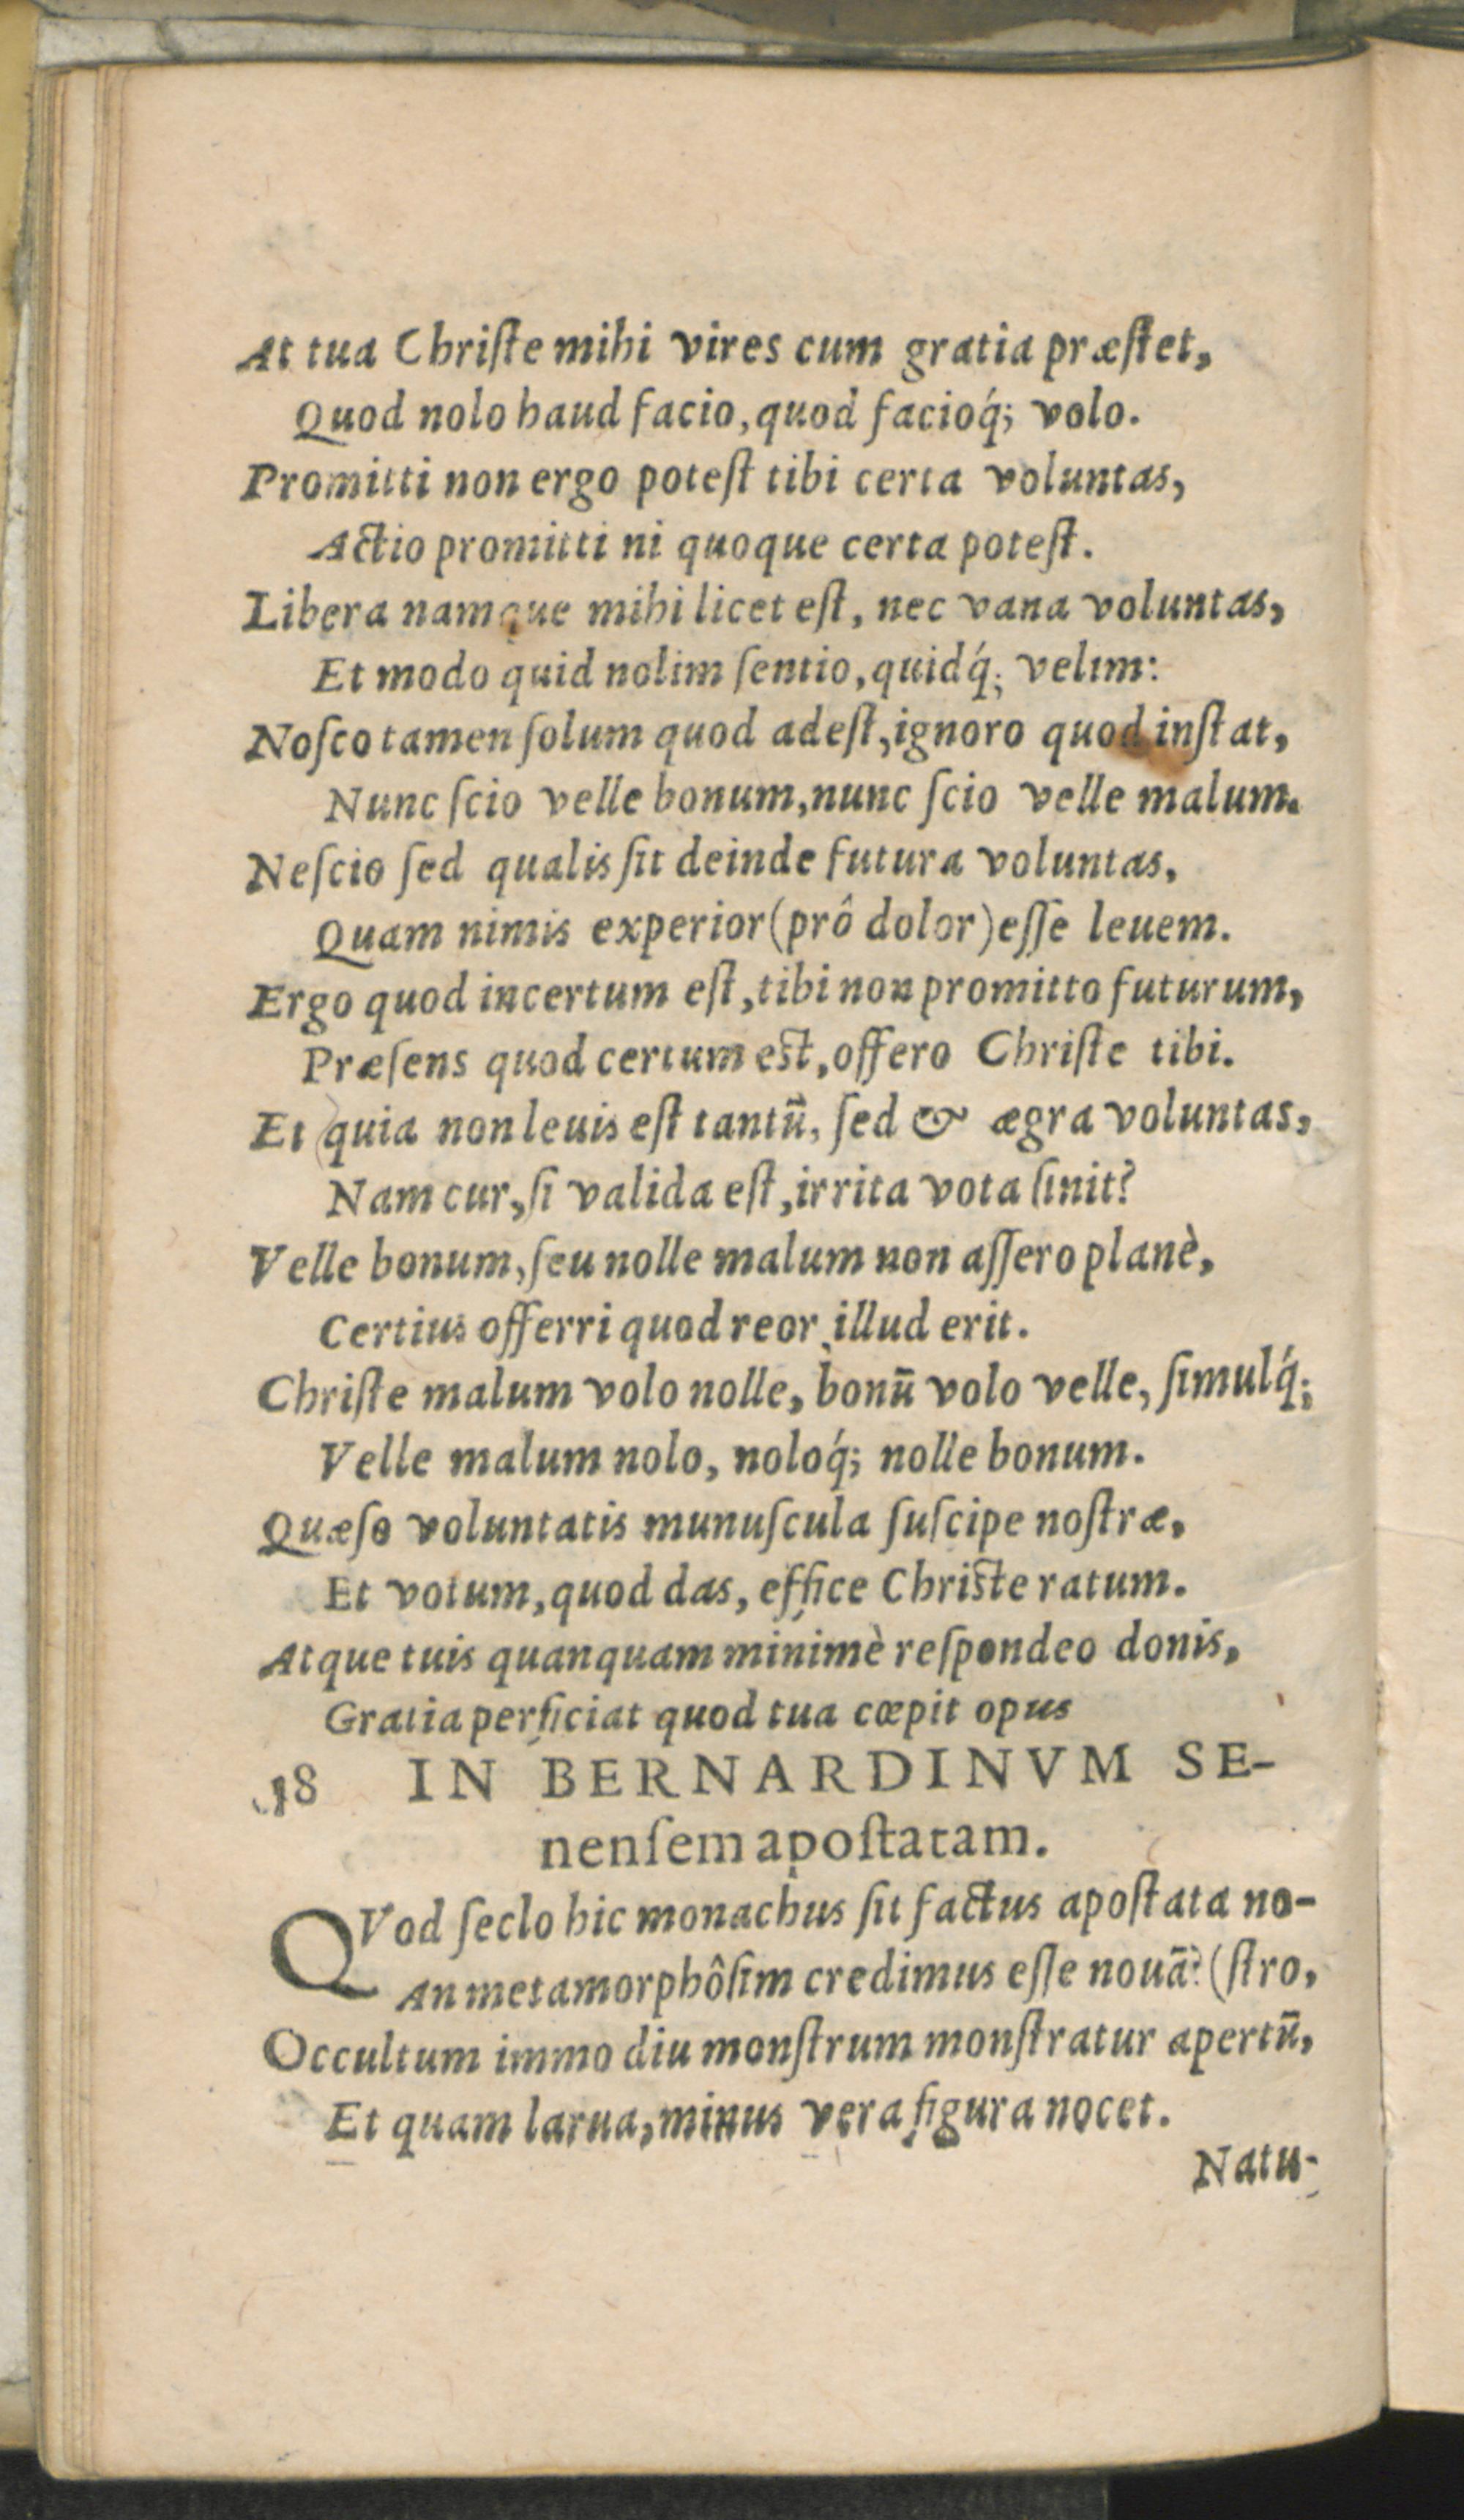 At tua Chriſte mihi vires cum gratia præſtet,
Quod nolo haud facio, quod facioq́; volo.
Promitti non ergo poteſt tibi certa voluntas,
Actio promitti ni quoque certa poteſt.
Libera namque mihi licet eſt, nec vana voluntas,
Et modo quid nolim ſentio, quidq́; velim:
Noſco tamen ſolum quod adeſt, ignoro quod inſtat,
Nunc ſcio velle bonum, nunc ſcio velle malum.
Neſcio ſed qualis ſit deinde futura voluntas,
Quam nimis experior (prô dolor) eſſe leuem.
Ergo quod incertum eſt, tibi non promitto futurum,
Præſens quod certum est, offero Chriſte tibi.
Et quia non leuis eſt tantū, ſed & ægra voluntas,
Nam cur, ſi valida eſt, irrita vota ſinit?
Velle bonum, ſeu nolle malum non aſſero planè,
Certius offerri quod reor, illud erit.
Chriſte malum volo nolle, bonū volo velle, ſimulq́;
Velle malum nolo, noloq́; nolle bonum.
Quæſo voluntatis munuſcula ſuſcipe noſtræ,
Et votum, quod das, effice Christe ratum.
Atque tuis quanquam minimè reſpondeo donis,
Gratia perficiat quod tua cœpit opus
18 IN BERNARDINVM SE-
nenſem apoſtatam.
QVod ſeclo hic monachus ſit factus apoſtata no-
An metamorphôſim credimus eſſe nouā? (ſtro,
Occultum immo diu monſtrum monſtratur apertū,
Et quam larua, minus vera figura nocet.
Natu-